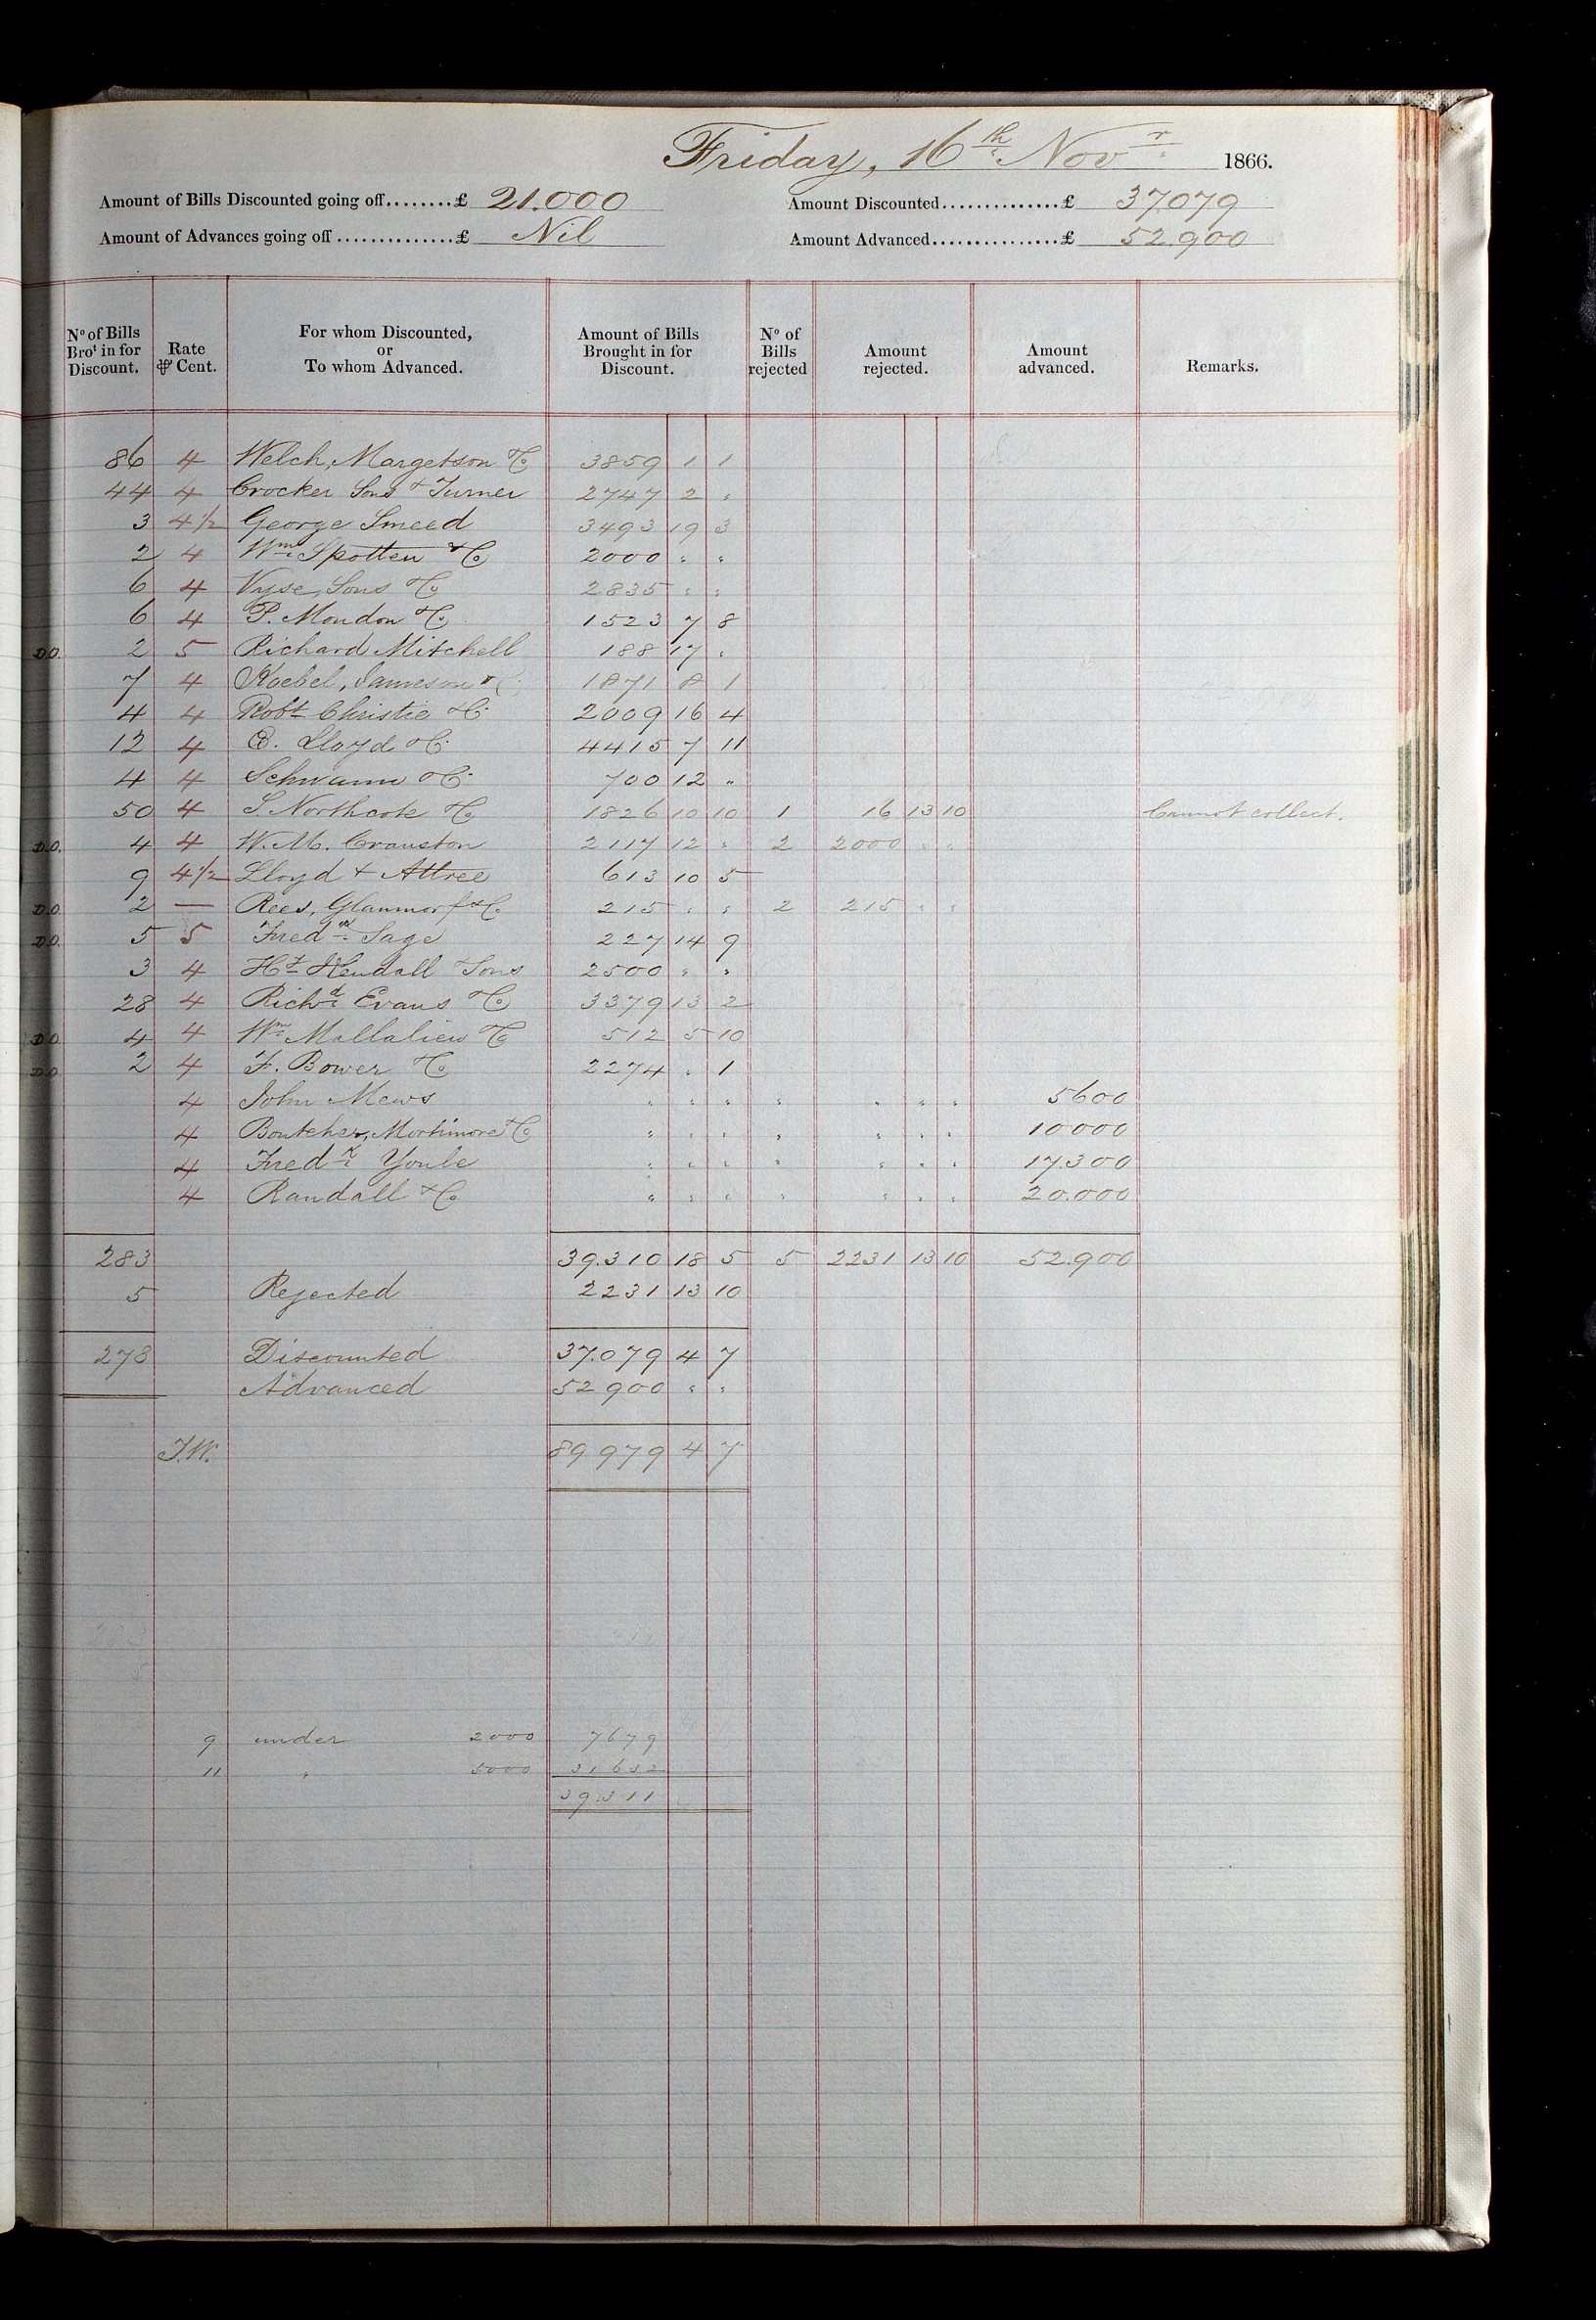 Friday, 16th Novr 1866.
Amount of Bills Discounted going off........£ 21.000 Amount Discounted..............£ 37.079
Amount of Advances going off..............£ Nil Amount Advanced...............£ 52.900
No of Bills Brot in for Discount. Rate ⅌ Cent. For whom Discounted, or To whom Advanced. Amount of Bills Brought in for Discount. No of Bills rejected Amount rejected. Amount advanced. Remarks.
86 4 Welch, Margetson & Co 3859 1 1
44 4 Crocker Sons & Turner 2747 2 "
3 4½ George Smeed 3493 19 3
2 4 Wm Spotten & Co 2000 " "
6 4 Vyse, Sons & Co 2835 " "
6 4 P. Moudon & Co 1523 7 8
D.O. 2 5 Richard Mitchell 188 17 "
7 4 Koebel, Jameson & Co 1871 8 1
4 4 Robt Christie & Co 2009 16 4
12 4 E. Lloyd & Co 4415 7 11
4 4 Schwann & Co 700 12 "
50 4 S. Northcote & Co 1826 10 10 1 16 13 10 Cannot collect.
D.O. 4 4 W. M. Cranston 2117 12 " 2 2000 " "
9 4½ Lloyd & Attree 613 10 5
D.O. 2 — Rees, & Co 215 " " 2 215 " "
D.O. 5 5 Fredk Sage 227 14 9
3 4 Hy Kendall & Sons 2500 " "
28 4 Richd Evans & Co 3379 13 2
D.O. 4 4 Wm Mallalieu & Co 512 5 10
D.O. 2 4 F. Bower & Co 2274 " 1
4 John Mews " " " " " " " 5600
4 Boutcher, Mortimore & Co " " " " " " " 10000
4 Fredk Youle " " " " " " " 17.300
4 Randall & Co " " " " " " " 20.000
283 39.310 18 5 5 2231 13 10 52.900
5 Rejected 2231 13 10
278 Discounted 37.079 4 7
Advanced 52900 " "
J.W. 89979 4 7
9 under 2000 7679
11 " 5000 31632
39.311